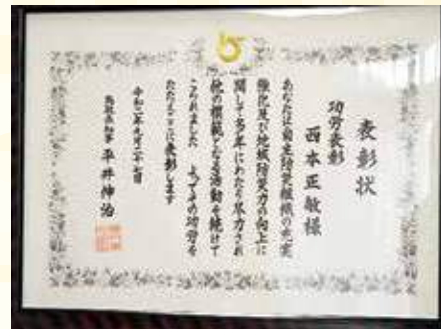 表彰状
功労表彰
西本正敏様
あなたは自主防災組織の充実
強化及び地域防災力の向上に
関して多年にわたり尽力され
他の模範となる活動を続けて
こられました よってその功労を
たたえここに表彰します
令和二年九月二十七日
鳥取県知事 平井伸治